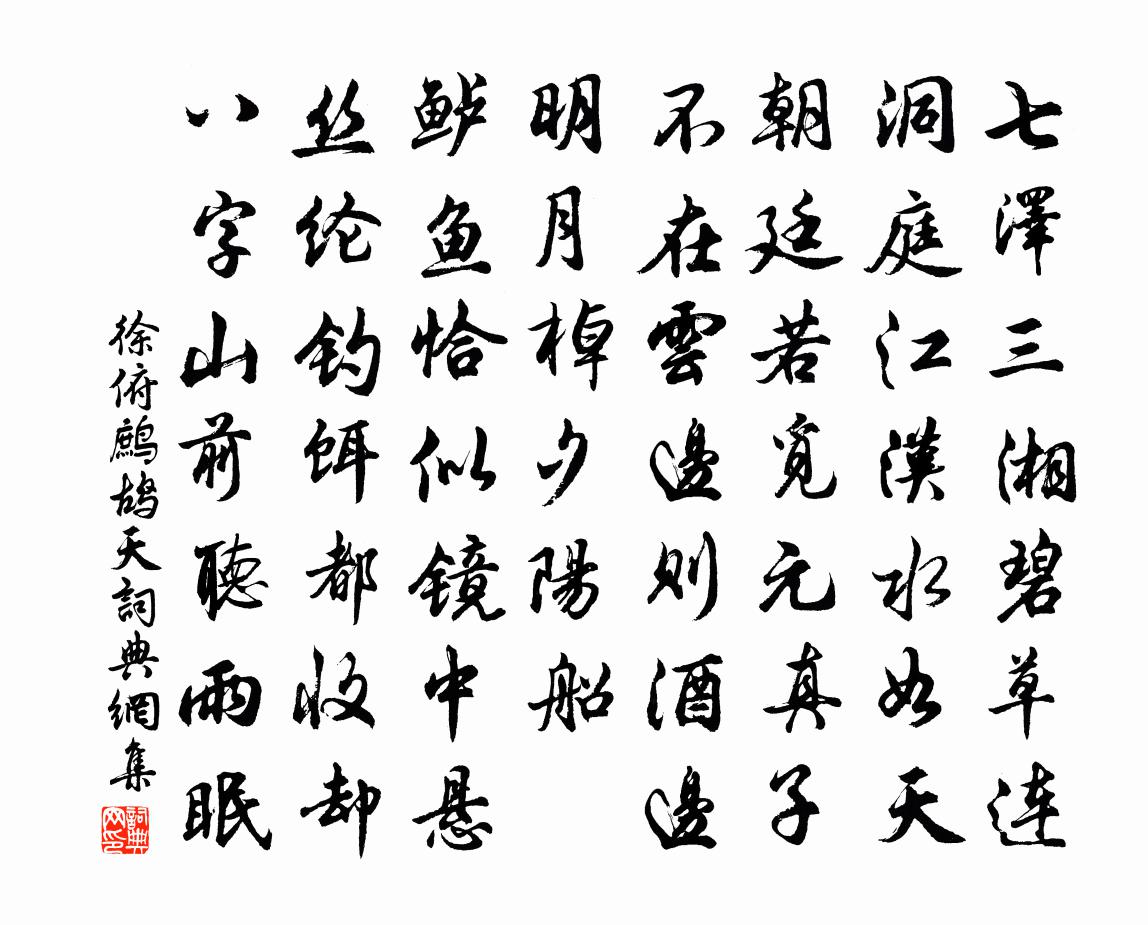 七澤三湘碧草连
洞庭江漢水如天
朝廷若覓元真子
不在雲邊则酒邊
明月棹夕陽船
鲈鱼恰似镜中悬
丝纶钓饵都收却
八字山前聽雨眠
徐俯鷓鴣天詞典網集
詞典网印